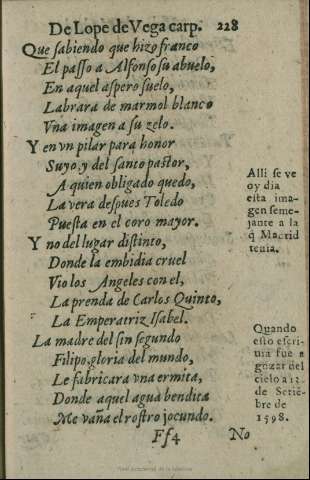 De Lope de Vega carp. 228
Que sabiendo que hizo franco
El passo a Alfonso su abuelo,
En aquel aspero suelo,
Labrara de marmol blanco
Vna imagen a su zelo.
Y en vn pilar para honor
Suyo, y del santo pastor,
A quien obligado quedo,
La vera despues Toledo
Puesta en el coro mayor.
Y no del lugar distinto,
Donde la embidia cruel
Vio los Angeles con el,
La prenda de Carlos Quinto,
La Emperatriz Isabel.
La madre del sin segundo
Filipo, gloria del mundo,
Le fabricara vna ermita,
Donde aquel agua bendita
Me vaña el rostro jocundo.
Ff4 No
Alli se ve
oy dia
esta ima-
gen seme-
jante a la
q̃ Madrid
tenia.
Quando
esto escri-
uia fue a
gozar del
cielo a 13
de Setiẽ-
bre de
1598.